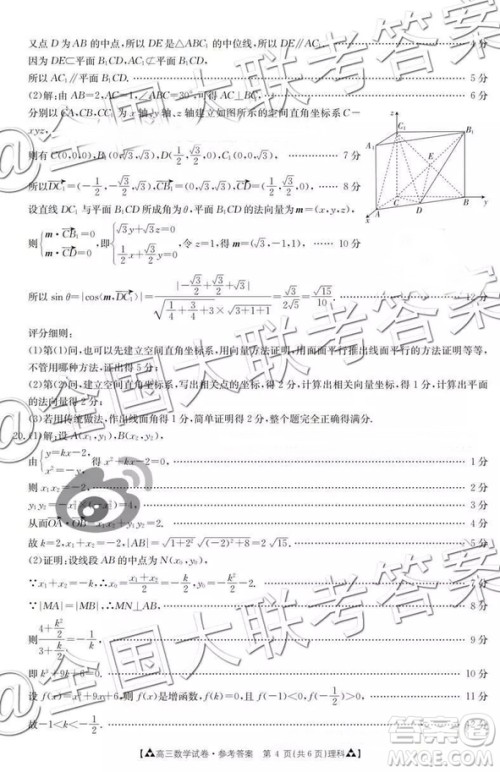 又点 D 为 AB 的中点,所以 DE 是△ABC₁ 的中位线,所以 DE∥AC₁. …… 4 分
因为 DE⊂平面 B₁CD, AC₁⊄平面 B₁CD,
所以 AC₁∥平面 B₁CD. …… 5 分
(2)解:由 AB=2,AC=1,∠ABC=30°,可得 AC⊥BC.
分别以 CA,CB,CC₁ 为 x 轴、y 轴、z 轴建立如图所示的空间直角坐标系 C-
xyz,
则有 C(0,0,0), B(0,√3,√3), D(1/2,√3/2,0), C₁(0,0,√3). …… 7 分
所以DC₁=(-1/2,-√3/2,√3), CD=(1/2,√3/2,0). …… 8 分
设直线 DC₁ 与平面 B₁CD 所成角为 θ,平面 B₁CD 的法向量为 m=(x,y,z),
则{m·CB₁=0 m·CD=0,即{√3y+√3z=0 ,令 z=1,得 m=(√3,-1,1). …… 10 分
所以 sin θ=|cos⟨m,DC₁⟩|=|-√3/2+√3/2+√3|/(√(1/4+3/4+3)×√(3+1+1))=√3/(2√5)=√15/10. …… 12 分
评分细则:
(1)第(1)问,也可以先建立空间直角坐标系,用向量方法证明,用面面平行推出线面平行的方法证明等等,
不管用哪种方法,证出得 5 分;
(2)第(2)问,建立空间直角坐标系,写出相关坐标,得 2 分,计算出相关向量坐标得 1 分,计算出平面
的法向量得 2 分;
(3)若用传统做法,作出线面角得 1 分,简单证明得 2 分,整个题完全正确得满分.
20.(1)解:设 A(x₁,y₁),B(x₂,y₂),
由{y=kx-2, x²=-y, 得 x²+kx-2=0. …… 1 分
则 x₁x₂=-2, …… 2 分
y₁y₂=-x₁²×(-x₂²)=4, …… 3 分
从而OA·OB=x₁x₂+y₁y₂=2. …… 4 分
故 k=2,x₁+x₂=-2,|AB|=√(1+2²)√((-2)²+8)=2√15. …… 5 分
(2)证明:设线段 AB 的中点为 N(x₀,y₀),
∵x₁+x₂=-k,∴x₀=(x₁+x₂)/2=-k/2,y₀=-k²/2-2. …… 7 分
∵|MA|=|MB|,∴MN⊥AB. …… 8 分
则 =-1/k, …… 9 分
即 k³+9k+6=0. …… 10 分
设 f(x)=x³+9x+6,则 f(x)是增函数,f(k)=0,且 f(-1)<0,f(-1/2)>0,
故-1<k<-1/2. …… 12 分
高三数学试卷·参考答案 第 4 页(共 6 页)理科
x
y
z
A₁
C₁
B₁
E
A
C
D
B
@全国大联考答案
@全国大联考答案